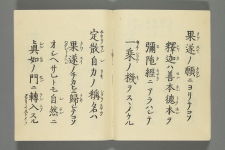 果遂ノ願ニヨリテコソ
釋迦ハ善本徳本ヲ
彌陀經ニアラハシテ
一乘ノ機ヲスヽメケル
定散自力ノ稱名ハ
果遂ノチカヒニ歸シテコソ
オシヘサレトモ自然ニ
眞如ノ門ニ轉入スル